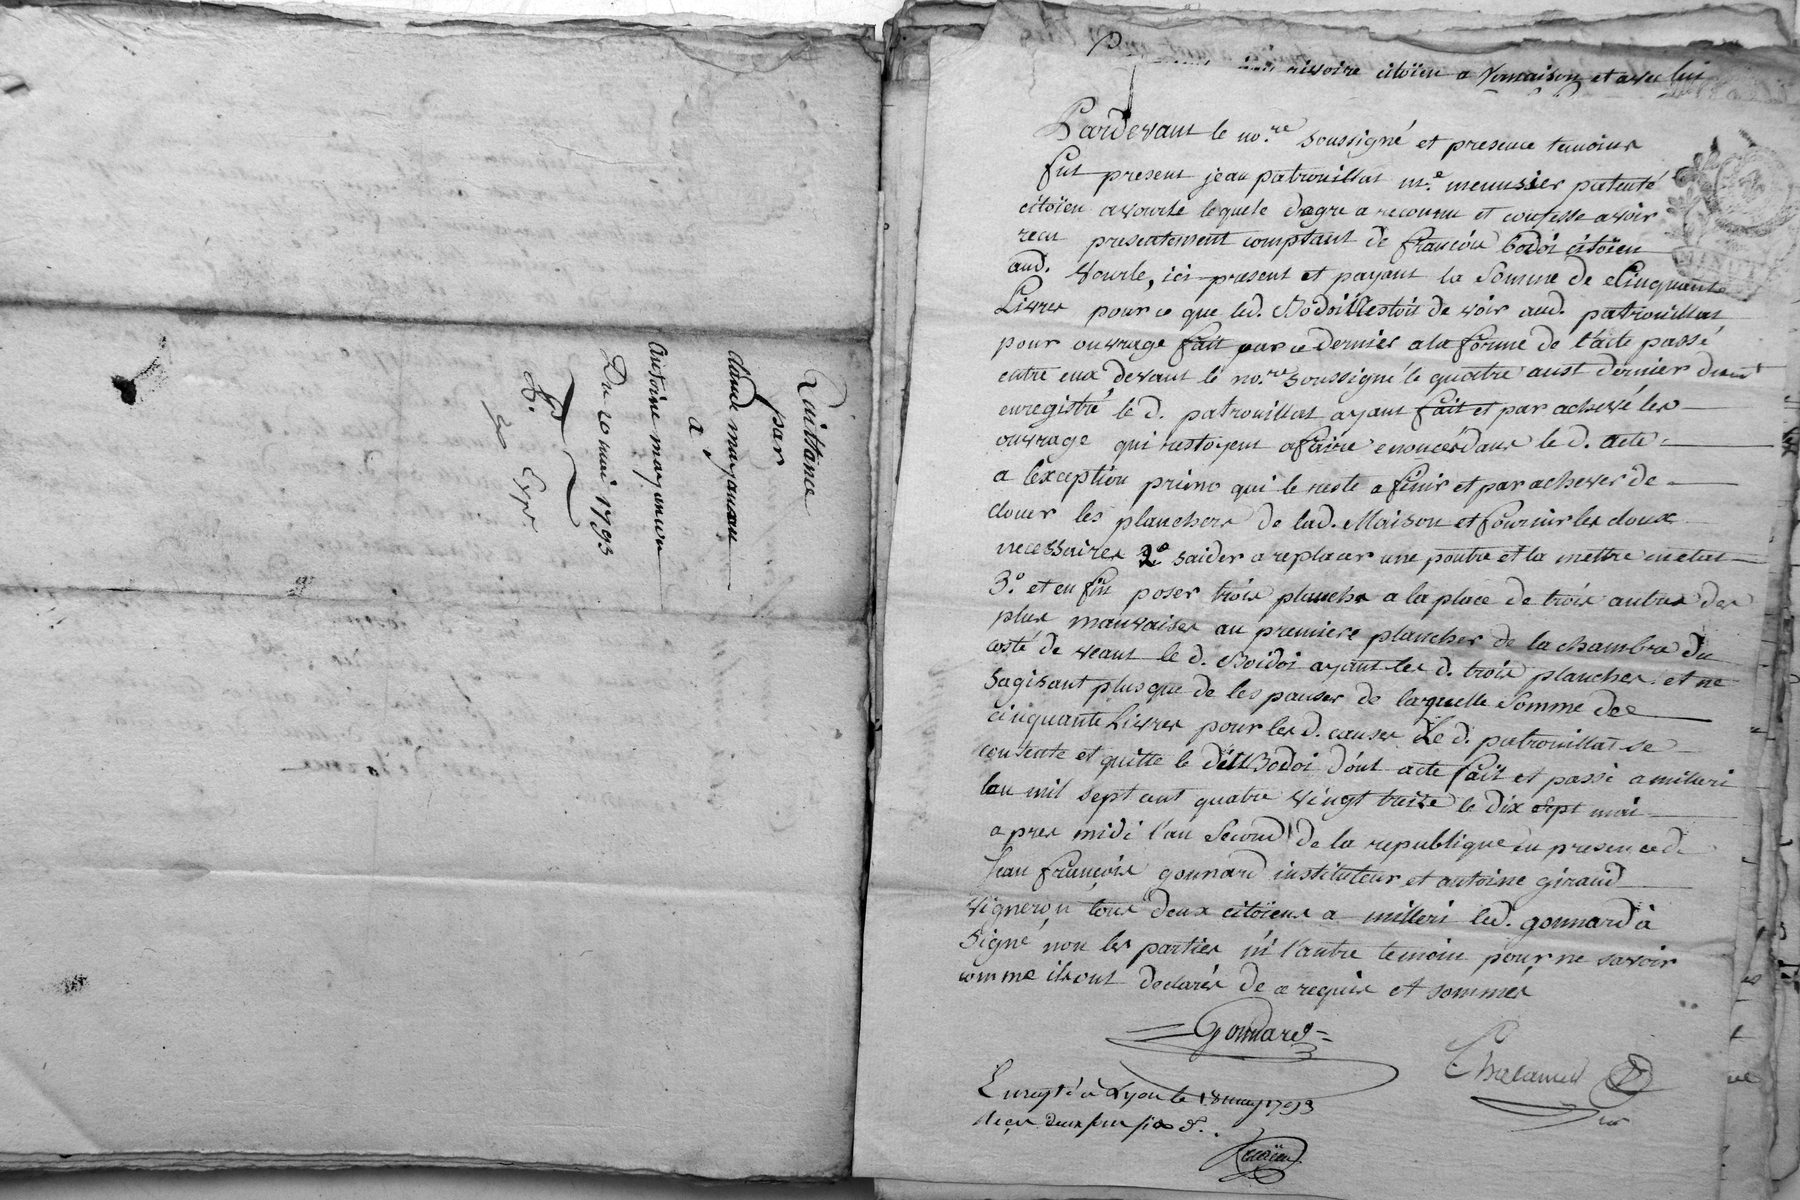 Quittance
par
claude mayanson
a
antoine mayanson
Du 20 mai 1793
Exp.
rivoire citoïen a Vernaison et avec lui
Pardevant le no.re soussigné et presence temoins
fut present jean patrouillat m.e menusier patenté
citoïen a vourle lequele de gre a reconnu et confesse avoir
recu presentement comptant de françois bodoi citoïen
aud. vourle, ici present et payant la somme de Cinquante
Livres pour ce que led. Bodoi estoit de voir aud. patrouillat
pour ouvrage fait par ce dernier a la forme de l'acte passé
entre eux devant le no.re soussigné le quatre aust dernier
enregistré le d. patrouillat ayant fait et par achevé les
ouvrage qui restoyent a faire enoncés dans le d. acte
a l'exception primo qui le reste a finir et par achever de
clouer les planchers de lad. Maison et fournir les cloux
necessaires 2.o saider a replacer une poutre et la mettre en etat
3.o et en fin poser trois planche a la place de trois autres des
plus mauvaises au premiere plancher de la chambre du
costé de veant le d. Boidoi ayant les d. trois planches et ne
sagisant plus que de les pauser de laquelle somme de
cinquante Livres pour les d. causes le d. patrouillat se
contente et quitte le dit Bodoi d'ont acte fait et passé a milleri
lan mil sept cent quatre vingt treize le dix sept mai
apres midi l'an second de la republique en presence de
Jean françois gonnard instituteur et antoine giraud
vigneron tous deux citoïens a milleri led. gonnard à
signé non les parties ni l'autre temoin pour ne savoir
comme ils ont declarés de ce requis et sommés
Gonnard
Enregt.é à Lyon le 18 may 1793